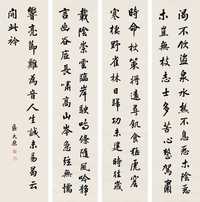 渴不飲盜泉水熱不息惡木陰惡
木豈無枝志士多苦心整駕肅
時命杖策將遠尋飢食猛虎窟
寒棲野雀林日歸功未建時往歲
載陰崇雲臨岸駭鳴條隨風吟靜
言幽谷底長嘯高山岑急絃無懦
響亮節難為音人生誠未易曷云
開此衿